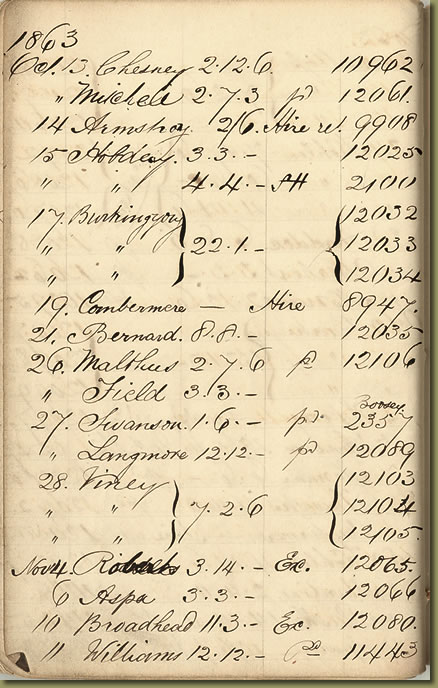 1863
Oct. 13. Chesney 2.12.6. 10962
" Mitchell 2.7.3 pd 12061.
14 Armstroy. 2/6. Hire ret. 9908
15 Hobday. 3.3.- 12025
" " 4.4.- SH 2100
17. Buckingyoung 12032
" " 22.1.- 12033
" " 12034
19. Combermere — Hire 8947.
21. Bernard. 8.8.- 12035
26. Malthus 2.7.6 pd 12106
" Field 3.3.-
Boosey
27. Swanson. 1.6.- pd. 2357
" Langmore 12.12.- pd 12089
28. Viney 12103
" " 7.2.6 12104
" " 12105.
Nov 4. 3.14.- Ex. 12065.
6 Aspa 3.3.- 12066
10 Broadhead 11.3.- Ex. 12080.
11 Williams 12.12.- Pd 11443